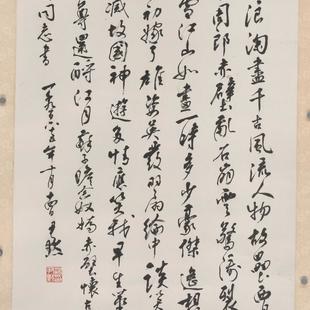 浪淘盡千古風流人物故壘西
周郎赤壁亂石崩雲驚濤裂
雪江山如畫一時多少豪傑遙想
初嫁了雄姿英發羽扇綸巾談笑
滅故國神遊多情應笑我早生華
尊還酹江月蘇子瞻念奴嬌赤壁懷古
同志書 年十月 尹默